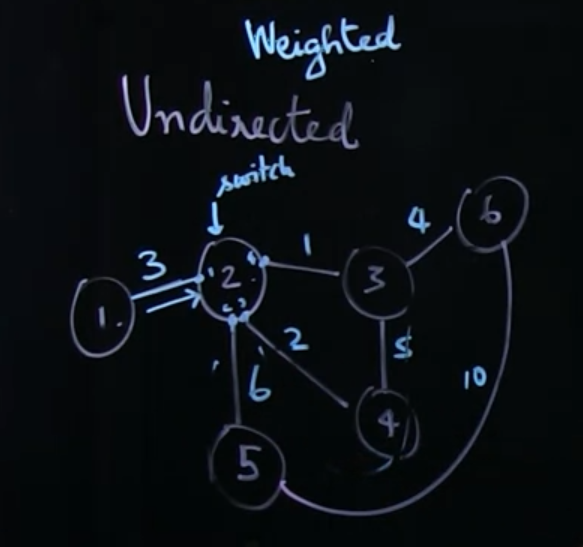 Weighted
Undirected
switch
6
4
3
1
2
3
1.
2
5
6
4
10
5